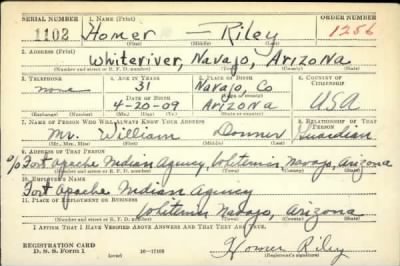 SERIAL NUMBER 1. NAME (Print) ORDER NUMBER
1102 Homer — Riley 1256
(First) (Middle) (Last)
2. ADDRESS (Print)
Whiteriver, Navajo, Arizona
(Number and street or R. F. D. number) (Town) (County) (State)
3. TELEPHONE 4. AGE IN YEARS 5. PLACE OF BIRTH 6. COUNTRY OF CITIZENSHIP
none 31 Navajo, Co
DATE OF BIRTH (Town or county)
4-20-09 Arizona USA
(Exchange) (Number) (Mo.) (Day) (Yr.) (State or country)
7. NAME OF PERSON WHO WILL ALWAYS KNOW YOUR ADDRESS 8. RELATIONSHIP OF THAT PERSON
Mr. William Donner Guardian
(Mr., Mrs., Miss) (First) (Middle) (Last)
9. ADDRESS OF THAT PERSON
% Fort Apache Indian Agency, Whiteriver, Navajo, Arizona
(Number and street or R. F. D. number) (Town) (County) (State)
10. EMPLOYER'S NAME
Fort Apache Indian Agency
11. PLACE OF EMPLOYMENT OR BUSINESS
Whiteriver Navajo, Arizona
(Number and street or R. F. D. number) (Town) (County) (State)
I AFFIRM THAT I HAVE VERIFIED ABOVE ANSWERS AND THAT THEY ARE TRUE.
REGISTRATION CARD
D. S. S. Form 1 (over) 16—17105 Homer Riley
(Registrant's signature)